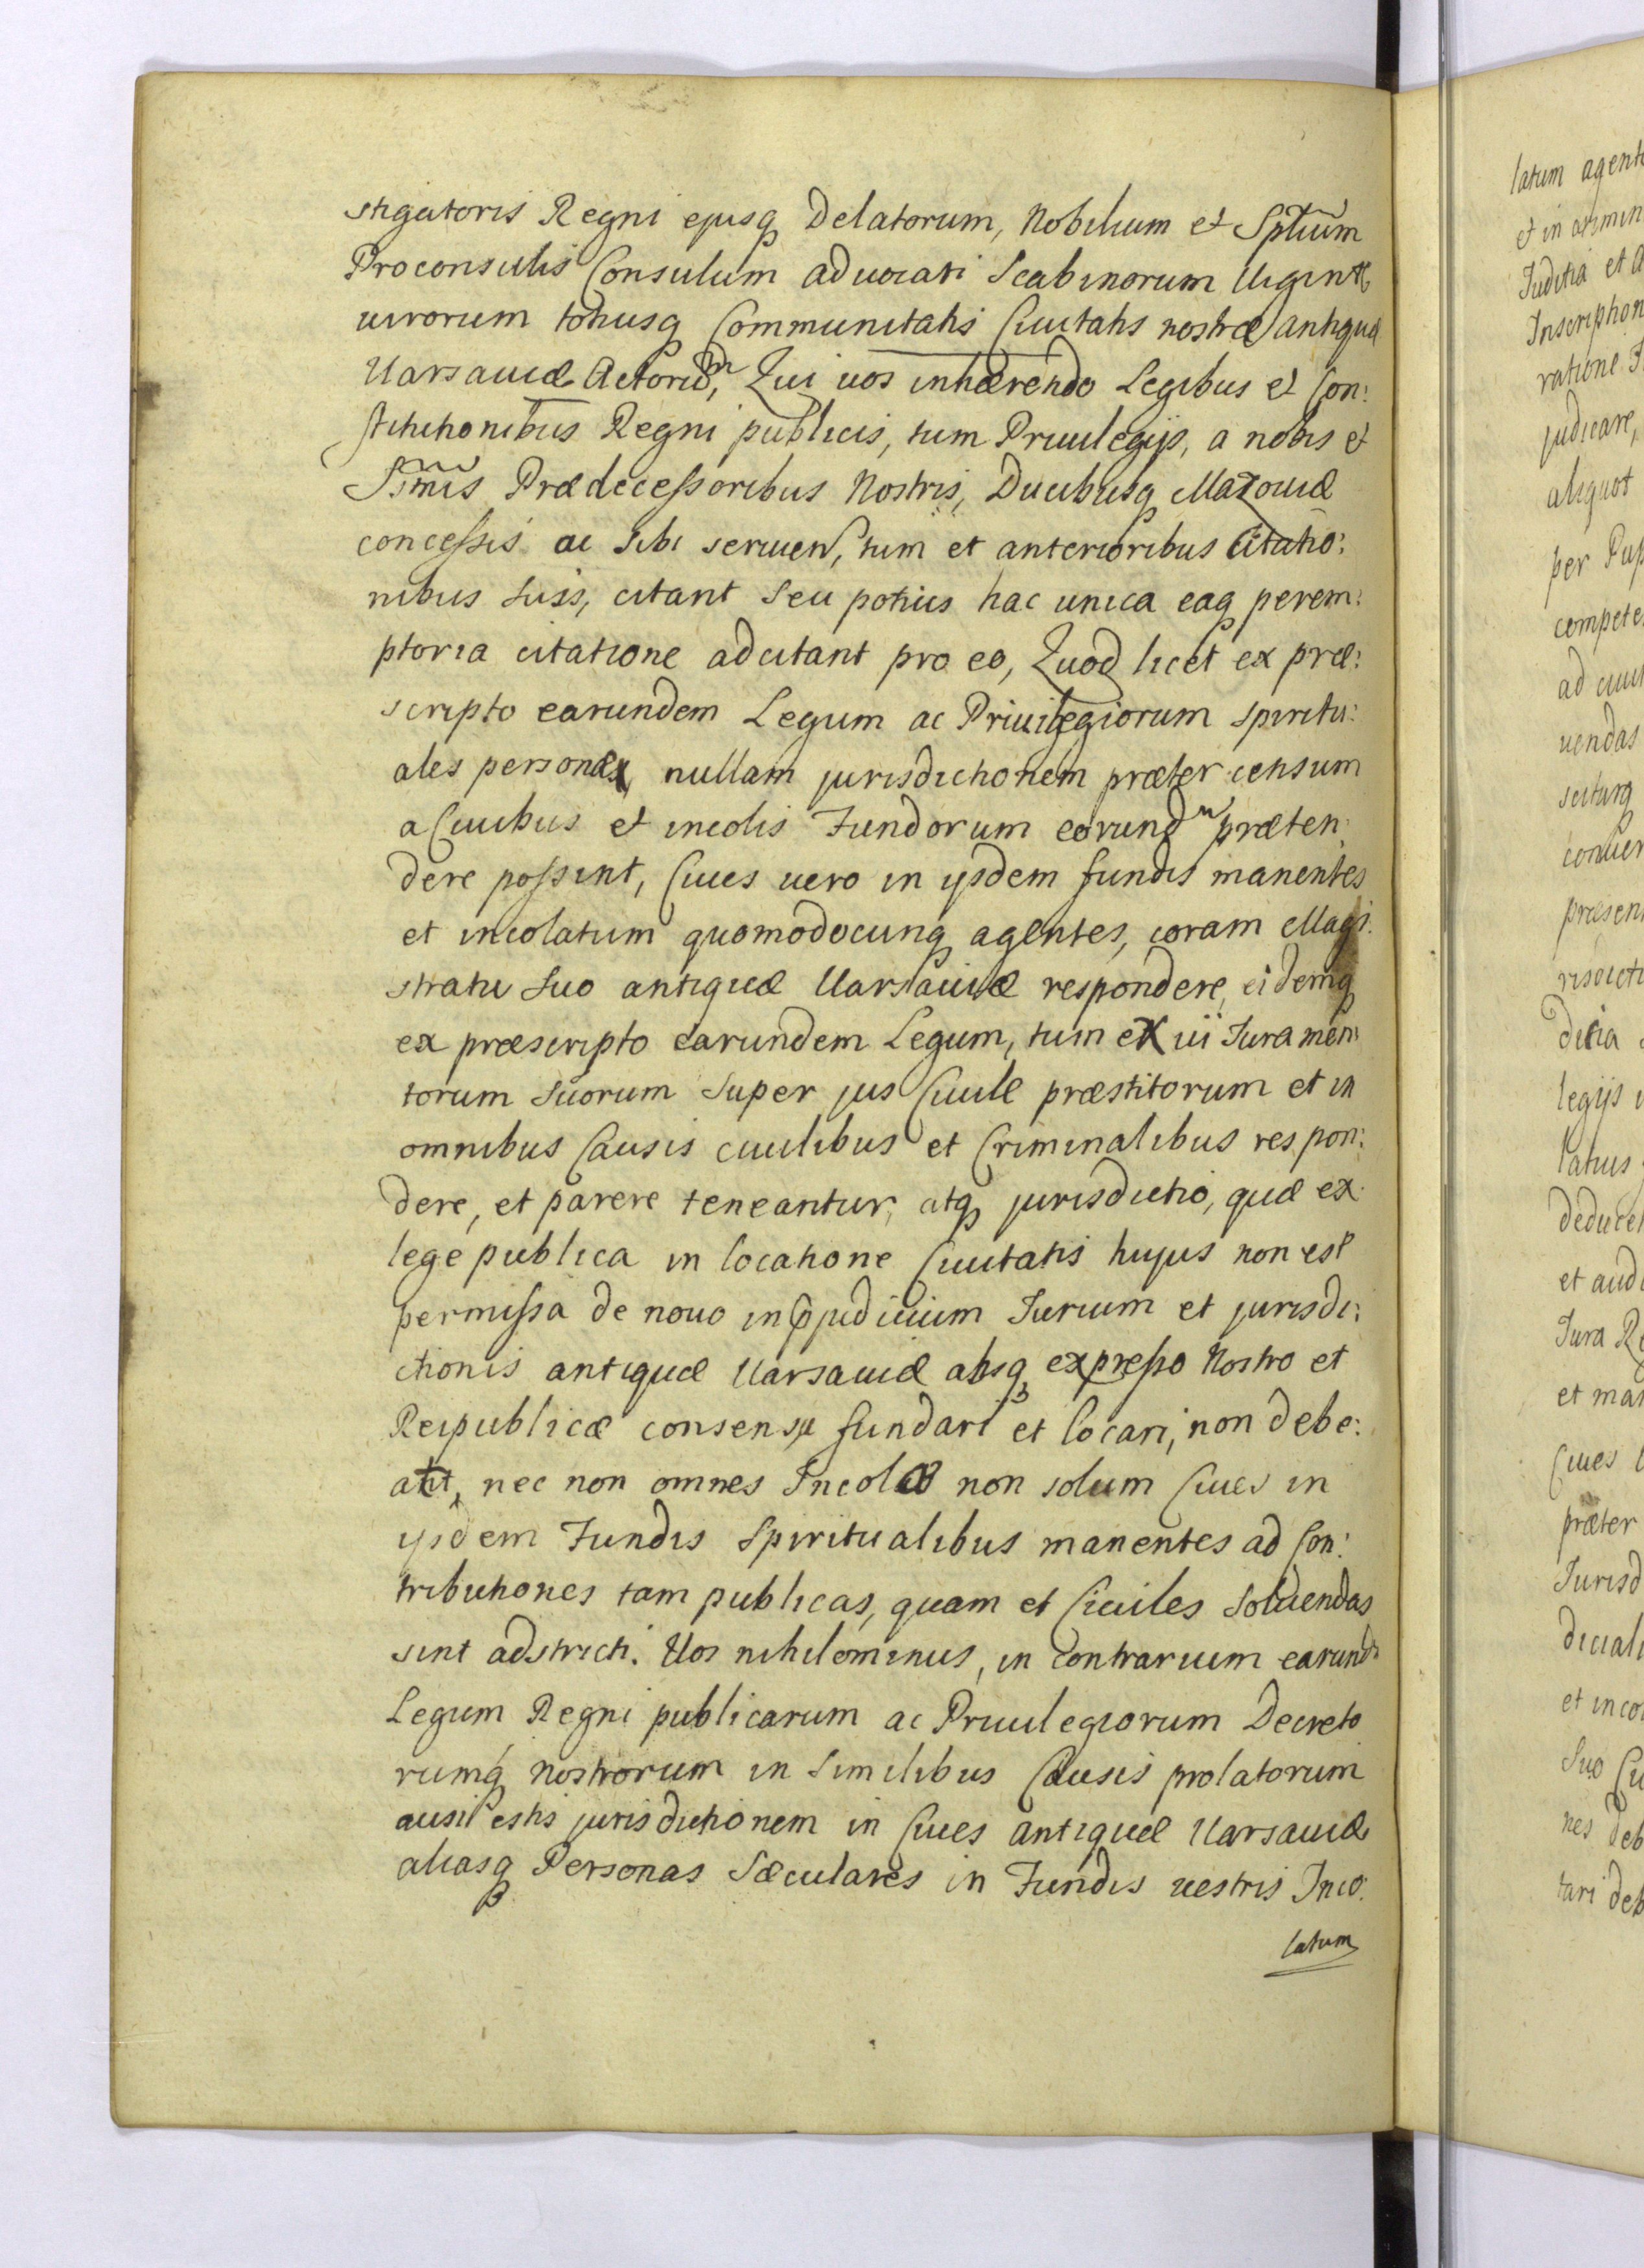 stigatoris Regni ejusq Delatorum, Nobilium et Sptium
Proconsulis Consulum advocati Scabinorum Uiginti
uirorum totiusq Communitatis Ciuitatis nostræ antiquæ
Uarsauiæ Actorum, Qui uos inhærendo Legibus et Con:
stitutionibus Regni publicis, tum Priuilegijs, a nobis et
Ssmis Prædecessoribus Nostris, Ducibusq Mazouiæ
concessis ac sibi seruien, tum et anterioribus Citatio:
nibus suis, citant seu potius hac unica eaq perem:
ptoria citatione adcitant pro eo, Quod licet ex præ:
scripto earundem Legum ac Priuilegiorum spiritu:
ales personæ, nullam jurisdictionem præter censum
a Ciuibus et incolis Fundorum eorundm præten:
dere possint, Ciues uero in ijsdem fundis manentes
et incolatum quomodocunq agentes, coram Magi:
stratu suo antiquæ Uarsauiæ respondere, eidemq
ex præscripto earundem Legum, tum ex ui Juramen:
torum suorum super jus Ciuile præstitorum et in
omnibus Causis ciuilibus et Criminalibus respon:
dere, et parere teneantur, atq jurisdictio, quæ ex
lege publica in locatione Ciuitatis hujus non est
permissa de nouo in pjudicium Jurium et jurisdi:
ctionis antiquæ Uarsauiæ absq expresso Nostro et
Reipublicæ consensu fundari et locari, non debe:
at, nec non omnes Incolæ non solum Ciues in
ijsdem Fundis Spiritualibus manentes ad Con:
tributiones tam publicas, quam et Ciuiles soluendas
sint adstricti. Uos nihilominus, in contrarium earundm
Legum Regni publicarum ac Priuilegiorum Decreto
rumq nostrorum in similibus Causis prolatorum
ausi estis jurisdictionem in Ciues antiquæ Uarsauiæ
aliasq Personas Sæculares in Fundis uestris Inco:
latum
latum
et in
Juditia et
ratione
judicare,
aliquot
per
ad
uendas
ditia
legijs
latius
et
Jura
et
Ciues
præter
et
suo
nes
tari